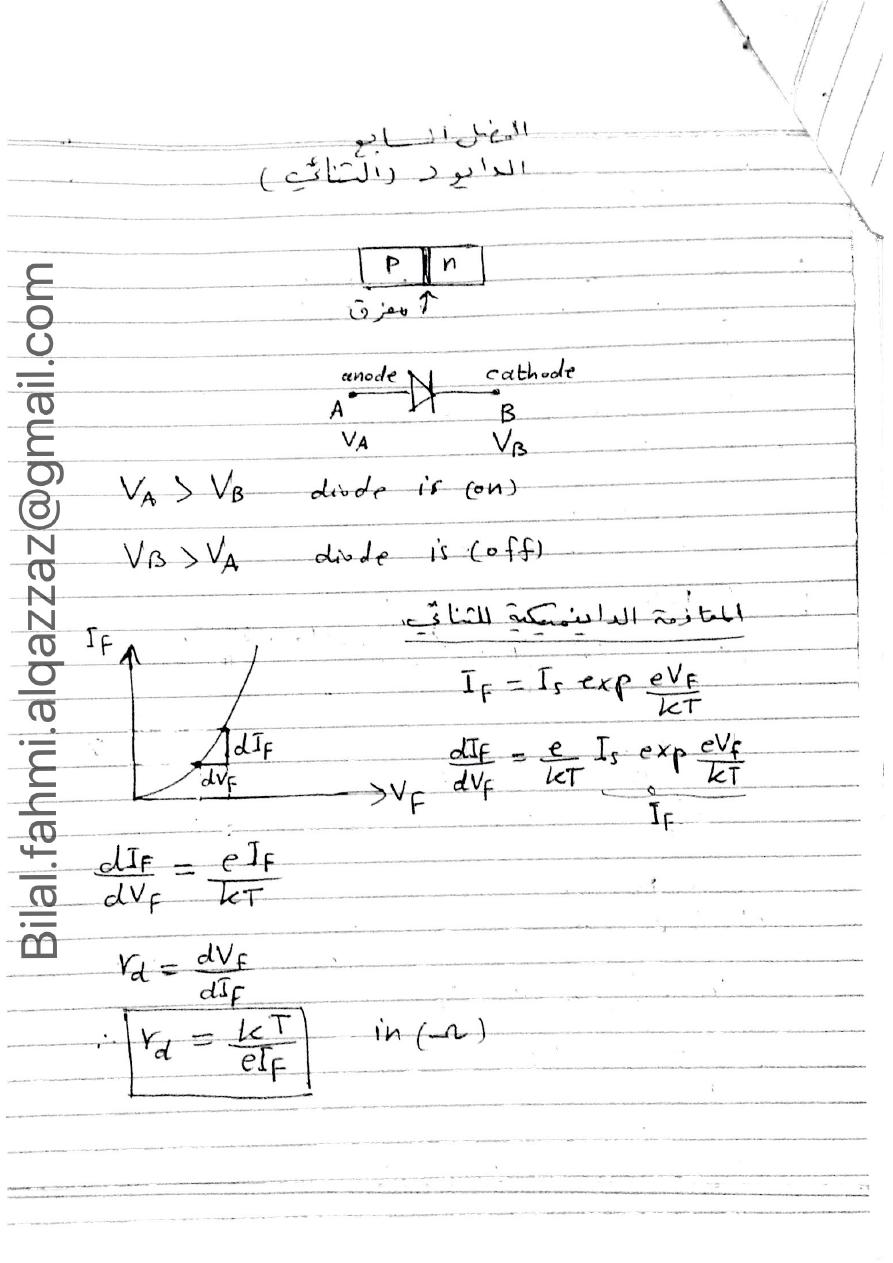 الفصل السابع
الدايود (الثنائي)
P n
مفرق
anode cathode
A B
VA VB
VA > VB diode is (on)
VB > VA diode is (off)
الممانعة الداينميكية للثنائي
IF
dIF
dVF
VF
IF = Is exp eVF/kT
dIF/dVF = e/kT Is exp eVf/kT
IF
dIF/dVF = eIF/kT
rd = dVF/dIF
∴ rd = kT/eIF in (Ω)
Bilal.fahmi.alqazzaz@gmail.com